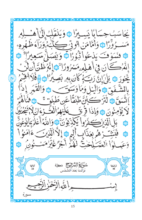 يُحَاسَبُ حِسَابًا يَسِيرًا وَيَنقَلِبُ إِلَىٰ أَهْلِهِ
مَسْرُورًا وَأَمَّا مَنْ أُوتِيَ كِتَابَهُ وَرَاءَ ظَهْرِهِ
فَسَوْفَ يَدْعُو ثُبُورًا وَيَصْلَىٰ سَعِيرًا
إِنَّهُ كَانَ فِي أَهْلِهِ مَسْرُورًا إِنَّهُ ظَنَّ أَن لَّن
يَحُورَ بَلَىٰ إِنَّ رَبَّهُ كَانَ بِهِ بَصِيرًا فَلَا أُقْسِمُ
بِالشَّفَقِ وَاللَّيْلِ وَمَا وَسَقَ وَالْقَمَرِ إِذَا
اتَّسَقَ لَتَرْكَبُنَّ طَبَقًا عَن طَبَقٍ فَمَا لَهُمْ
لَا يُؤْمِنُونَ وَإِذَا قُرِئَ عَلَيْهِمُ الْقُرْآنُ لَا يَسْجُدُونَ
بَلِ الَّذِينَ كَفَرُوا يُكَذِّبُونَ وَاللَّهُ أَعْلَمُ بِمَا يُوعُونَ
فَبَشِّرْهُم بِعَذَابٍ أَلِيمٍ إِلَّا الَّذِينَ آمَنُوا
وَعَمِلُوا الصَّالِحَاتِ لَهُمْ أَجْرٌ غَيْرُ مَمْنُونٍ
سُورَةُ الْبُرُوجِ
بِسْمِ اللَّهِ الرَّحْمَٰنِ الرَّحِيمِ